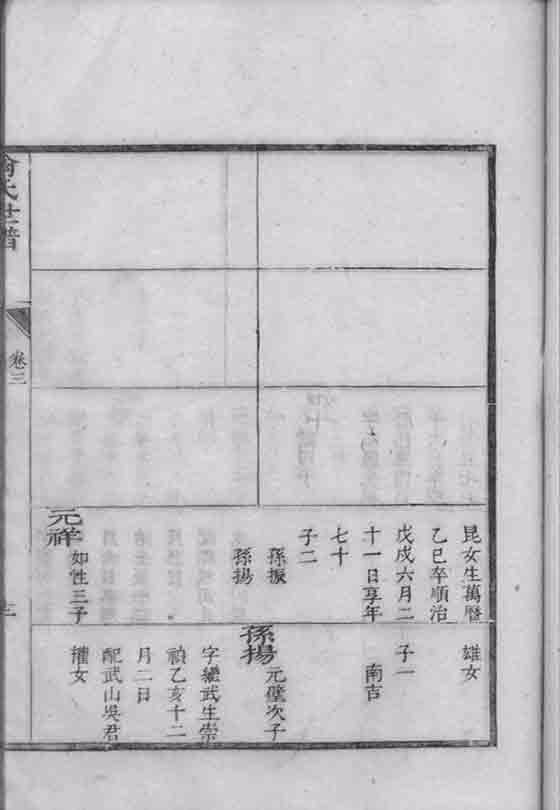 昆女生萬曆
乙巳卒順治
戊戌六月二
十一日享年
七十
子二
孫振
孫揚
如性三子
元祥
雄女
子一
南吉
元璧次子
孫揚
字繼武生崇
禎乙亥十二
月二日
配武山吳君
權女
氏世譜
卷三